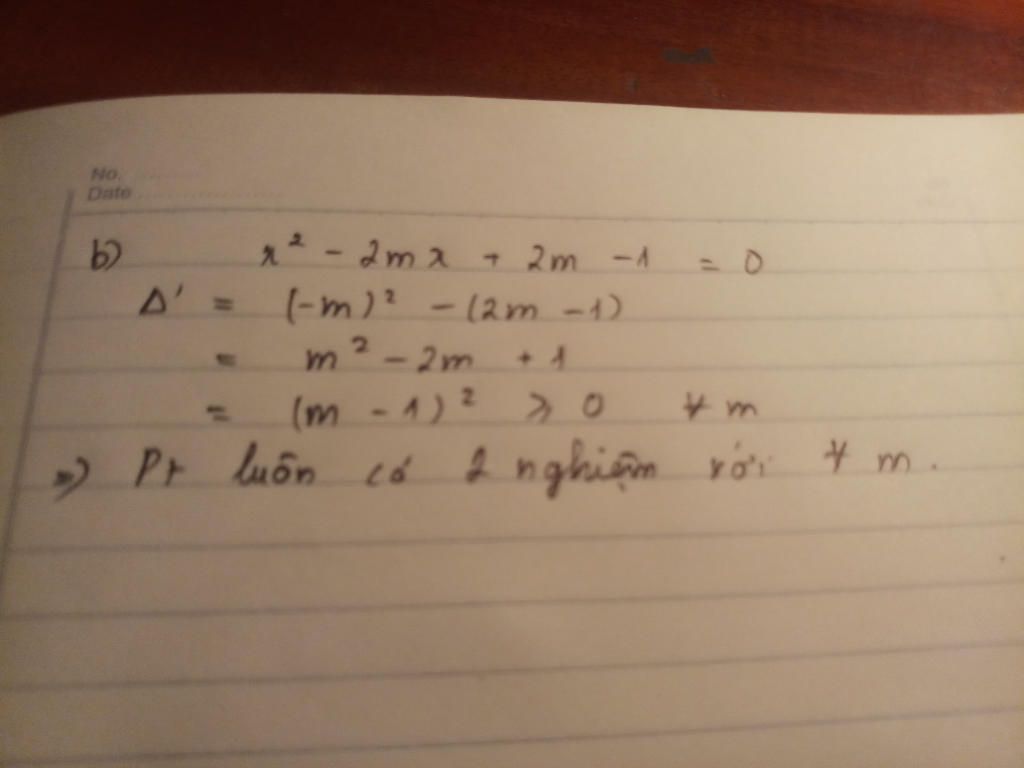 No. ............
Date ........................
b) x² - 2mx + 2m - 1 = 0
Δ' = (-m)² - (2m - 1)
= m² - 2m + 1
= (m - 1)² ⩾ 0 ∀ m
=> Pt luôn có 2 nghiệm với ∀ m.